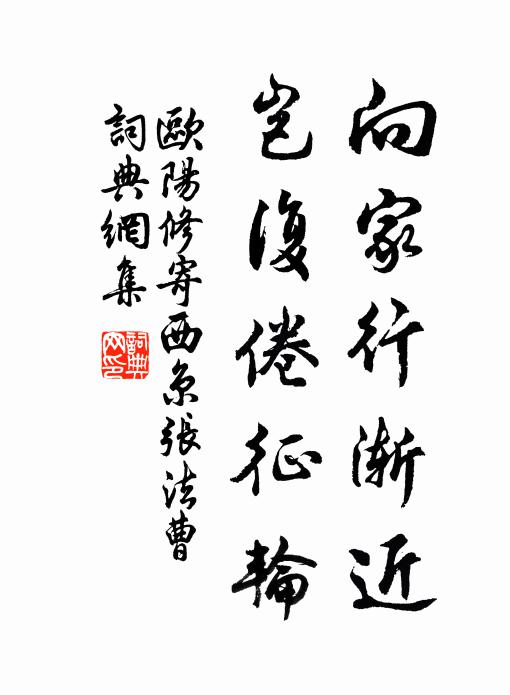 向家行漸近
豈復倦征輪
歐陽修寄西京張法曹
詞典網集
詞典
網印